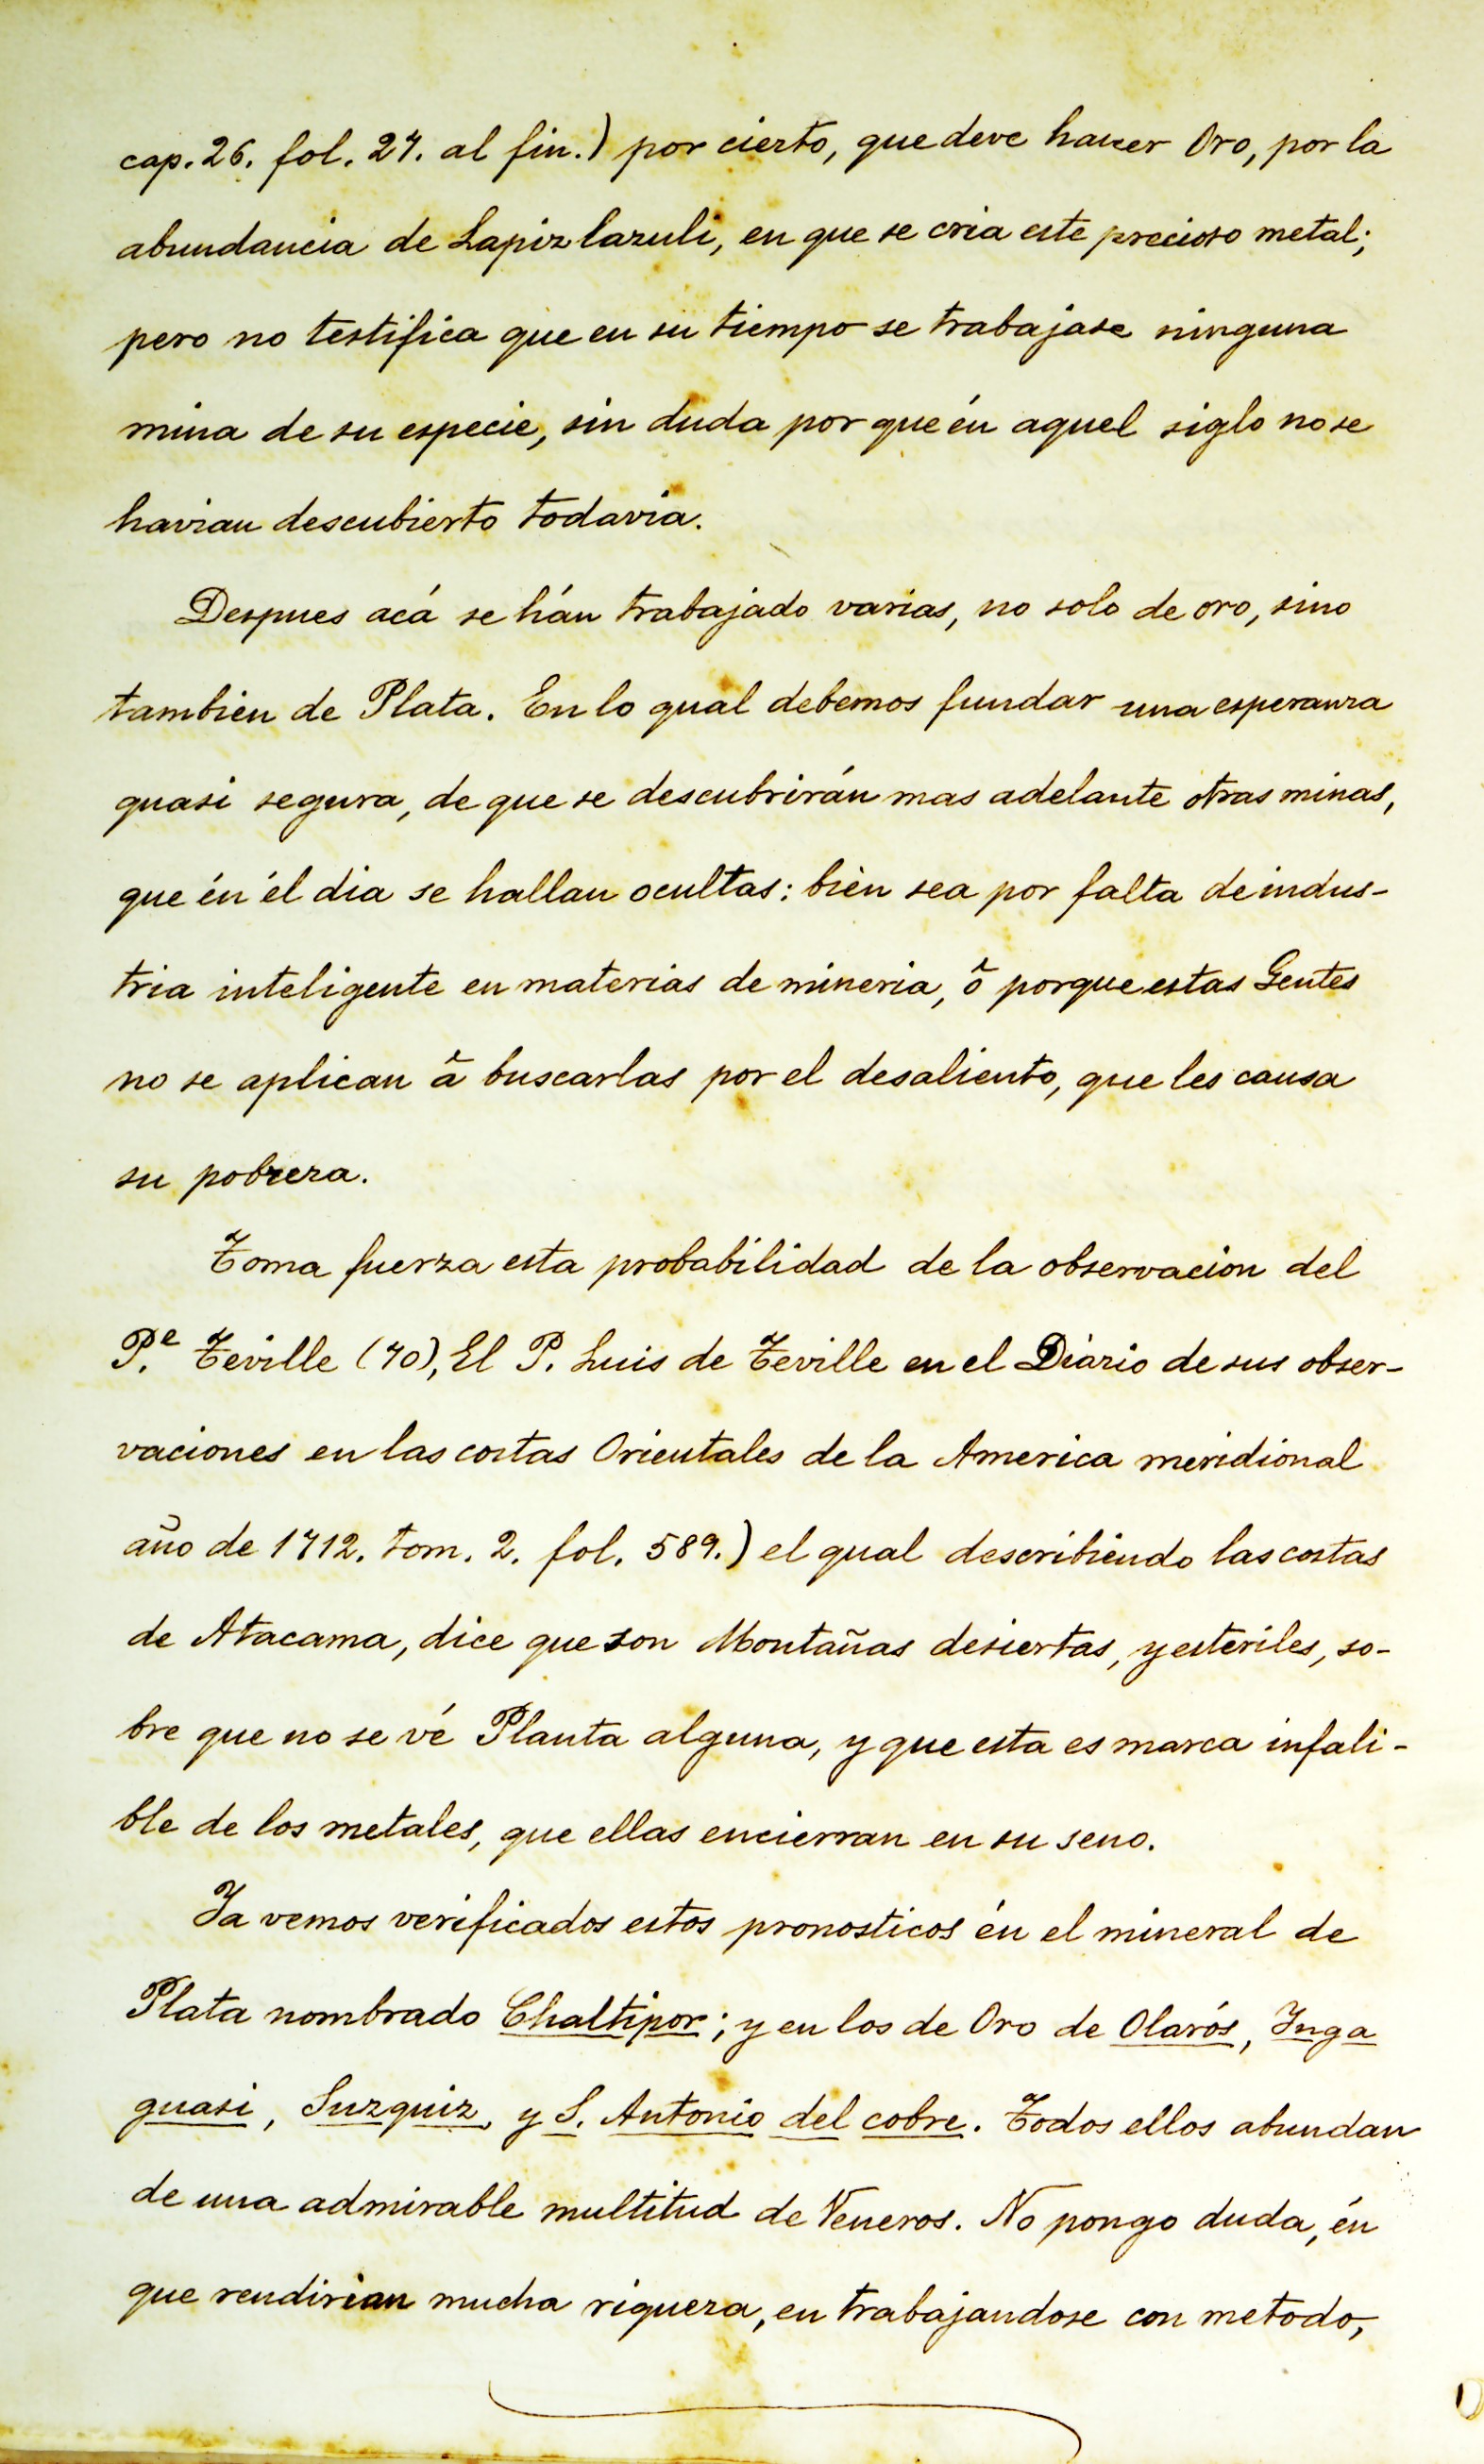 cap. 26. fol. 27. al fin.) por cierto, que deve haver Oro, por la
abundancia de Lapizlazuli, en que se cria este precioso metal;
pero no testifica que en su tiempo se trabajase ninguna
mina de su especie, sin duda por que én aquel siglo no se
havian descubierto todavia.
Despues acá se hán trabajado varias, no solo de oro, sino
tambien de Plata. En lo qual debemos fundar una esperanza
quasi segura, de que se descubrirán mas adelante otras minas,
que én él dia se hallan ocultas: bién sea por falta de indus-
tria inteligente en materias de mineria, õ porque estas Gentes
no se aplican ã buscarlas por el desaliento, que les causa
su pobreza.
Toma fuerza esta probabilidad de la observacion del
P.e Feville (70), El P. Luis de Feville en el Diario de sus obser-
vaciones en las costas Orientales de la America meridional
año de 1712. tom. 2. fol. 589.) el qual describiendo las costas
de Atacama, dice que son Montañas desiertas, y esteriles, so-
bre que no se vé Planta alguna, y que esta es marca infali-
ble de los metales, que ellas encierran en su seno.
Ya vemos verificados estos pronosticos én el mineral de
Plata nombrado Chaltipor; y en los de Oro de Olarós, Inga
guasi, Suzquiz, y S. Antonio del cobre. Todos ellos abundan
de una admirable multitud de Veneros. No pongo duda, én
que rendirian mucha riqueza, en trabajandose con metodo,